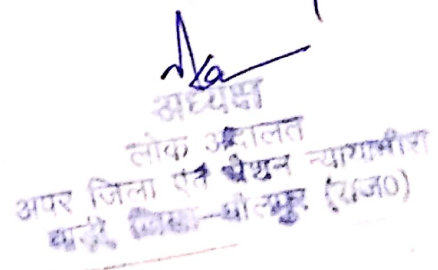 अध्यक्ष
लोक अदालत
अपर जिला एवं सेशन न्यायाधीश
बाड़ी जिला-धौलपुर (राज0)